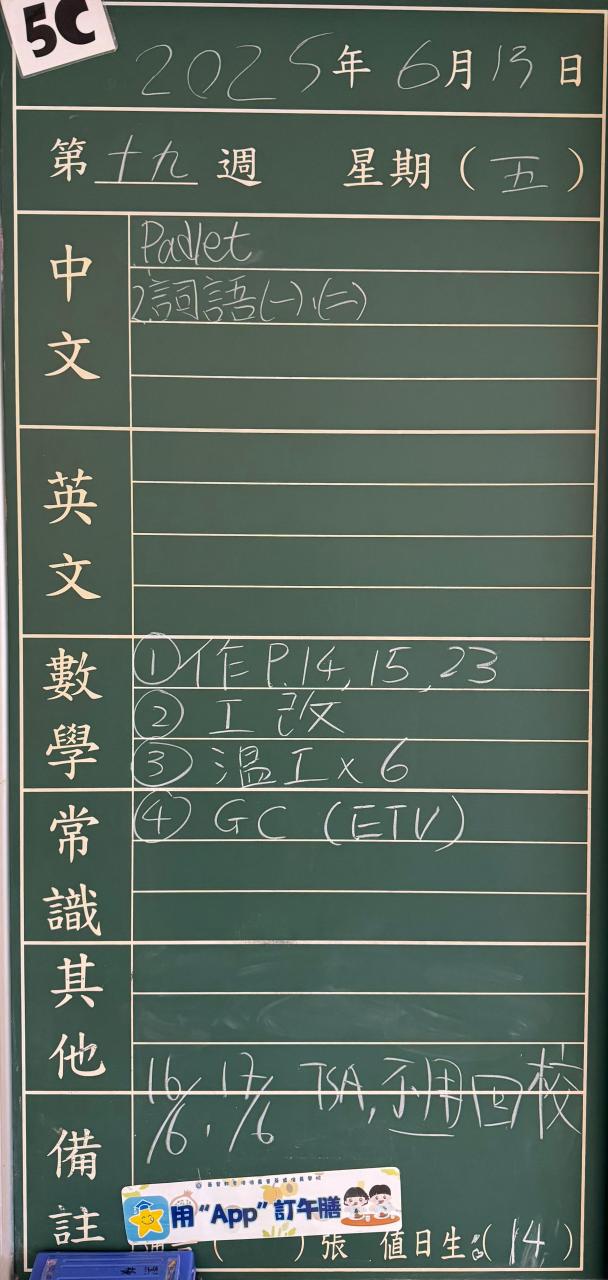 5C
2025年6月13日
第十九週 星期（五）
中文
Padlet
2.詞語(一)、(二)
英文
數學
① 作 P.14, 15, 23
② 工改
③ 温工 x 6
常識
④ GC (ETV)
其他
16/6, 17/6 TSA, 不用回校
備註
用“App”訂午膳
( ) 張 值日生:( 14 )